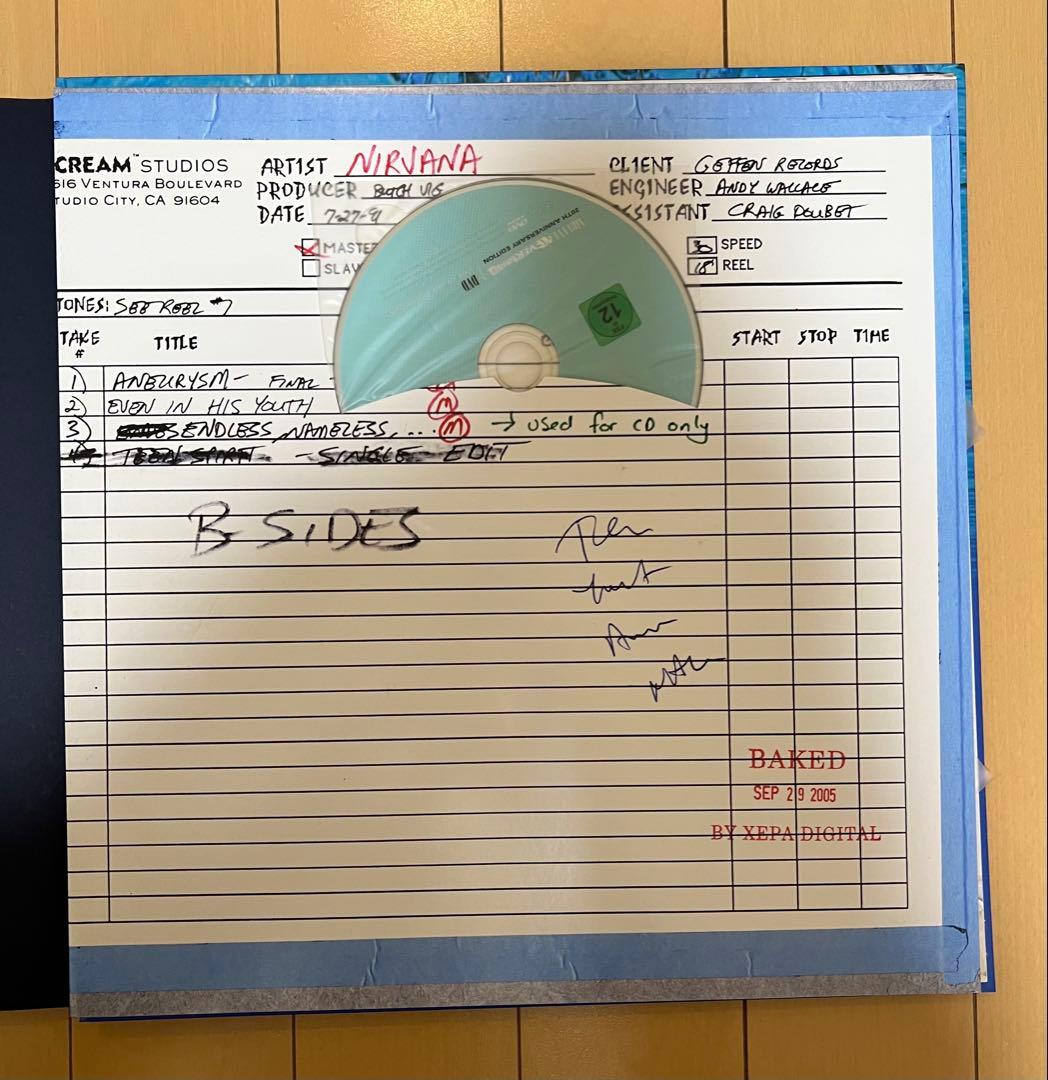 CREAM™ STUDIOS
616 VENTURA BOULEVARD
TUDIO CITY, CA 91604
ARTIST NIRVANA
PRODUCER BUTCH VIG
DATE 7-27-91
MASTE
SLAV
CLIENT GEFFEN RECORDS
ENGINEER ANDY WALLACE
SSISTANT CRAIG DOUBET
30 SPEED
REEL
20TH ANNIVERSARY EDITION
NEVERMIND
DVD
FSK
12
TONES: SEE REEL #7
TAKE # TITLE START STOP TIME
1) ANEURYSM - FINAL -
2) EVEN IN HIS YOUTH M
3) ENDLESS, NAMELESS, ... M → used for CD only
4) TEEN SPIRIT - SINGLE EDIT
B SIDES
BAKED
SEP 29 2005
BY XEPA DIGITAL